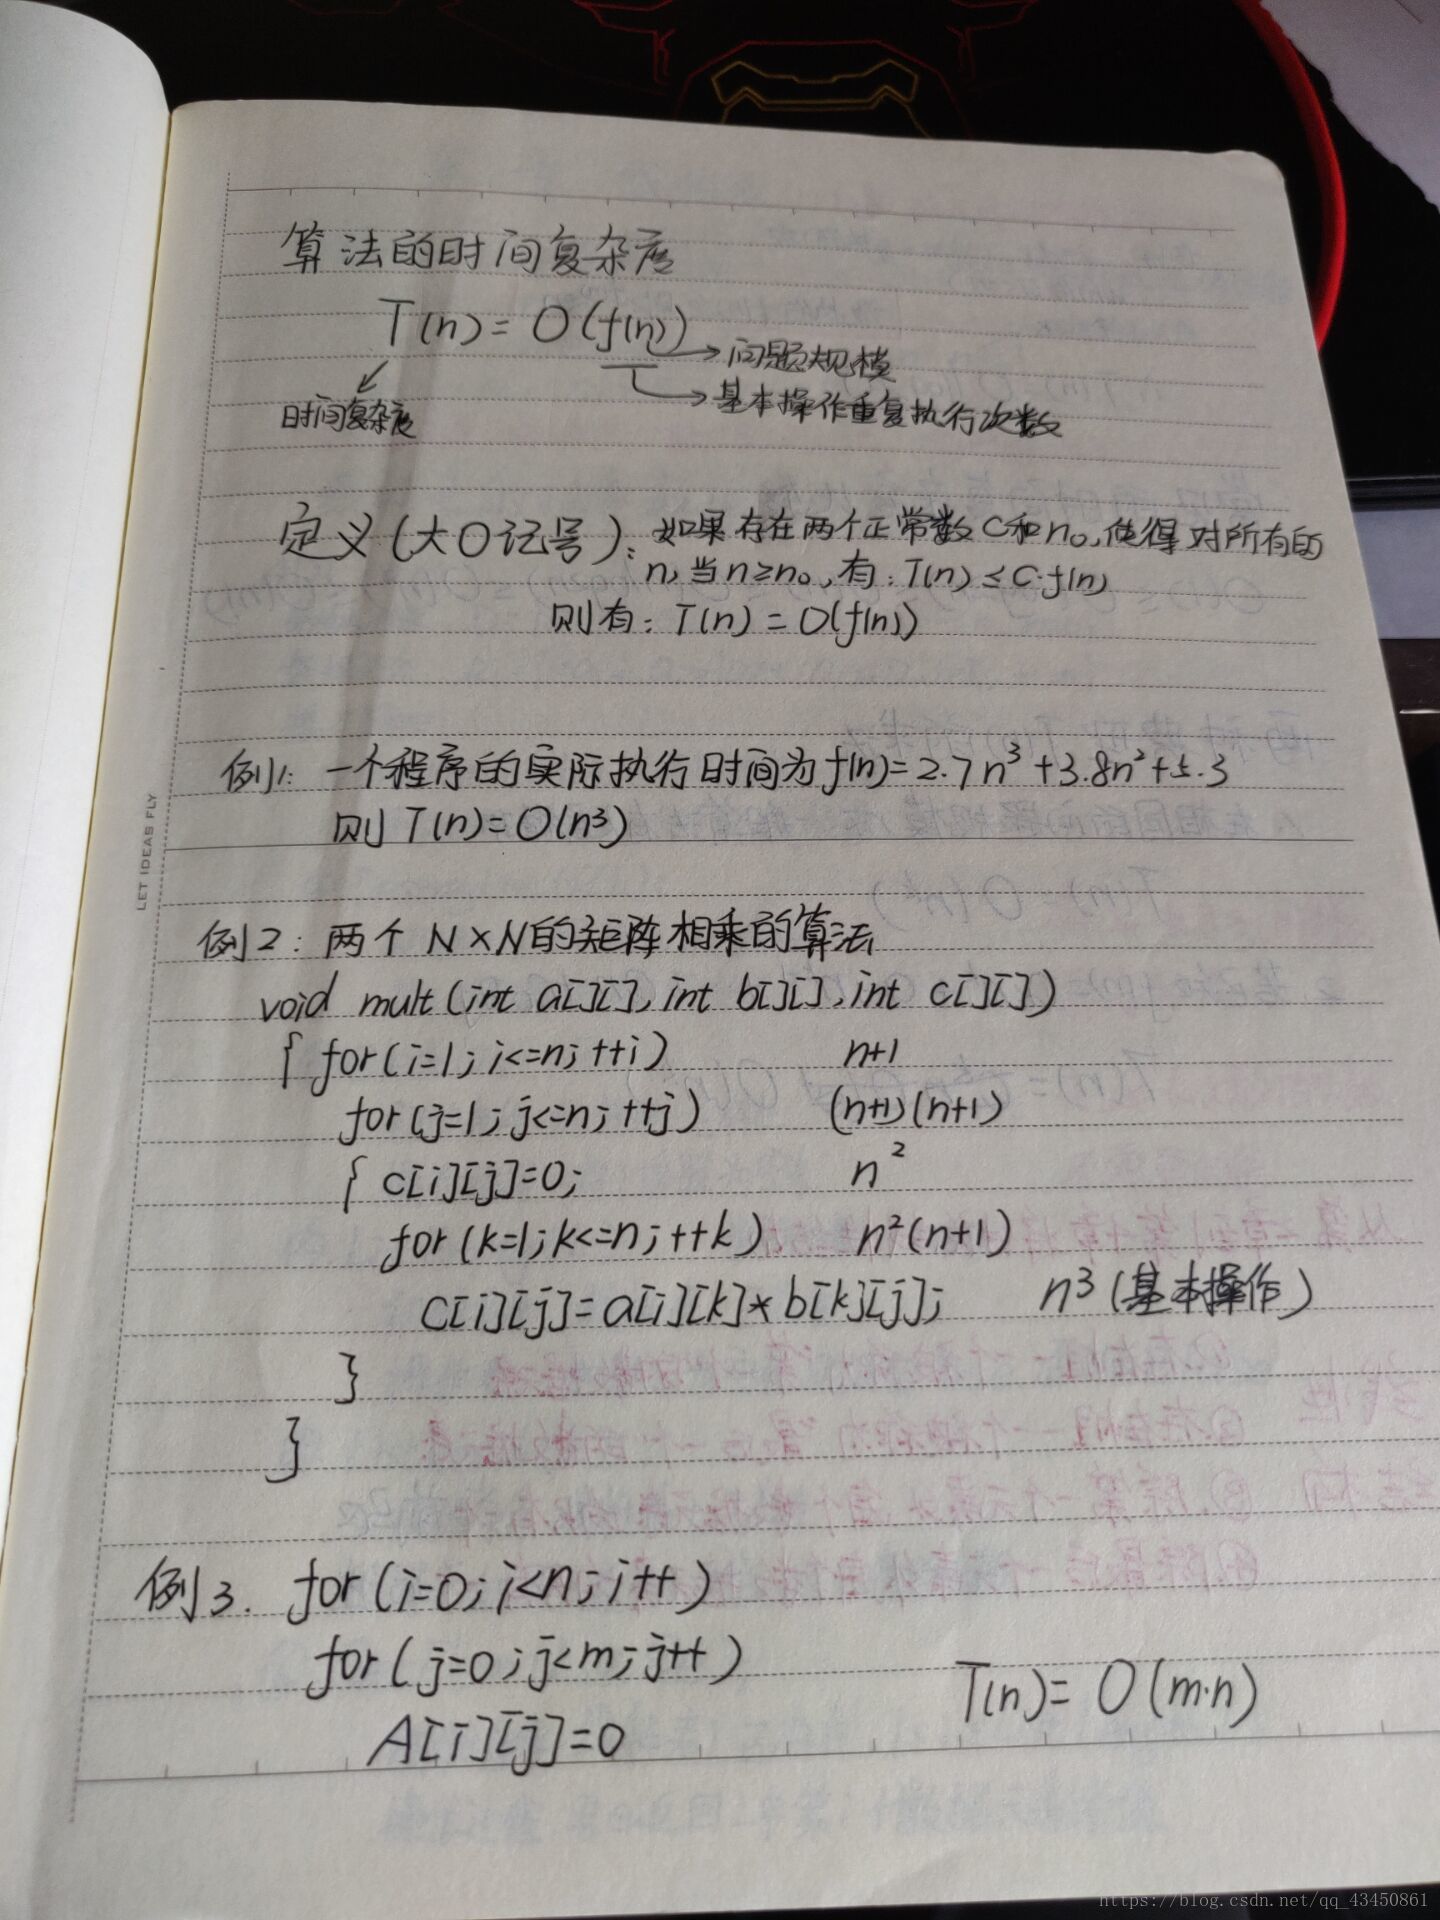 算法的时间复杂度
T(n)=O(f(n))
问题规模
基本操作重复执行次数
时间复杂度
定义(大O记号): 如果存在两个正常数C和n₀,使得对所有的
n,当n≥n₀,有:T(n)≤C·f(n)
则有:T(n)=O(f(n))
例1: 一个程序的实际执行时间为f(n)=2.7n³+3.8n²+5.3
则T(n)=O(n³)
例2: 两个N×N的矩阵相乘的算法
void mult(int a[][],int b[][],int c[][])
{ for(i=1;i<=n;++i) n+1
for(j=1;j<=n;++j) (n+1)(n+1)
{ c[i][j]=0; n²
for(k=1;k<=n;++k) n²(n+1)
c[i][j]=a[i][k]*b[k][j]; n³(基本操作)
}
}
例3. for(i=0;i<n;i++)
for(j=0;j<m;j++)
T(n)=O(m·n)
A[i][j]=0
LET IDEAS FLY
https://blog.csdn.net/qq_43450861